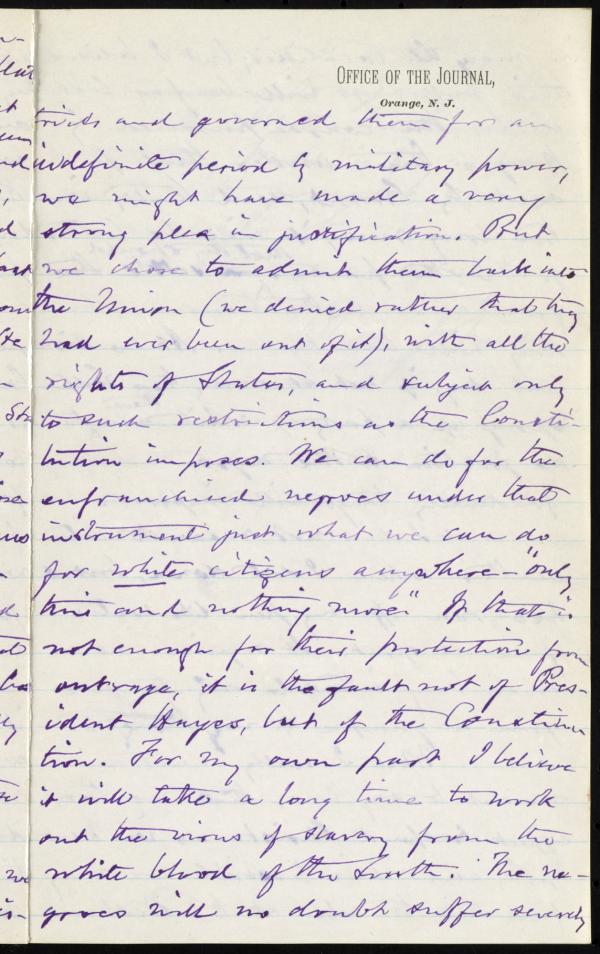 OFFICE OF THE JOURNAL,
Orange, N. J.
tricts and governed them for an
indefinite period by military power,
we might have made a very
strong plea in justification. But
we chose to admit them back into
the Union (we denied rather that they
had ever been out of it), with all the
rights of States, and subject only
to such restrictions as the Consti-
tution imposes. We can do for the
enfranchised negroes under that
instrument just what we can do
for white citizens anywhere – "only
this and nothing more." If that is
not enough for their protection from
outrage, it is the fault not of Pres-
ident Hayes, but of the Constitu-
tion. For my own part I believe
it will take a long time to work
out the virus of slavery from the
white blood of the South. The ne-
groes will no doubt suffer severely